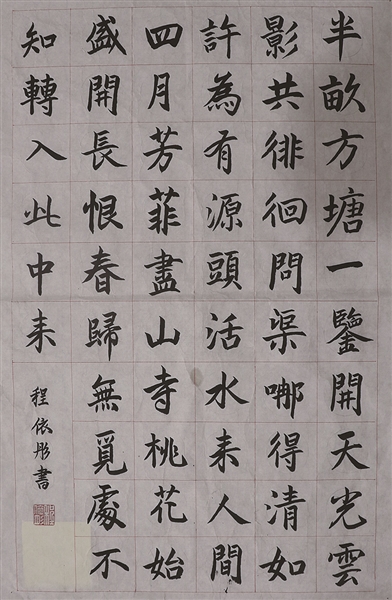 半畝方塘一鑒開天光雲
影共徘徊問渠哪得清如
許為有源頭活水来人間
四月芳菲盡山寺桃花始
盛開長恨春歸無覓處不
知轉入此中来
程依彤書